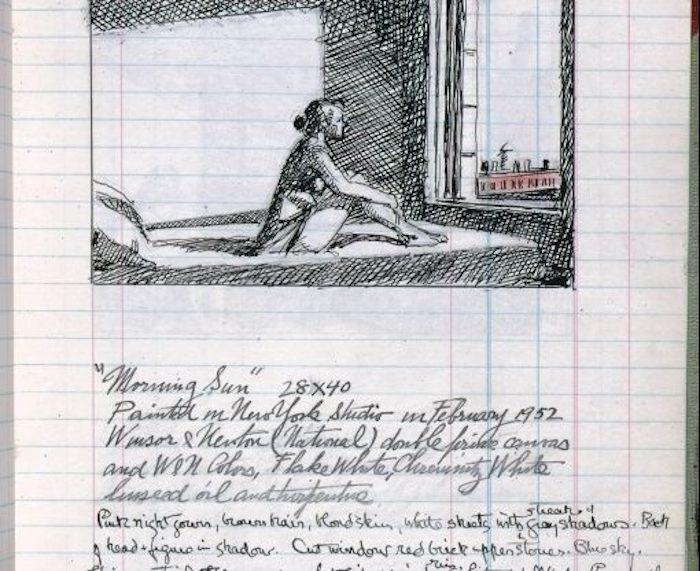 "Morning Sun" 28X40
Painted in New York Studio in February 1952
Winsor & Newton (National) double prime canvas
and W&N Colors, Flake White, Chremnitz White
linseed oil and turpentine
streak of
Pink nightgown, brown hair, blond skin, white sheets with gray shadows. Back
of head & figure in shadow. Out window red brick upper stories. Blue sky.